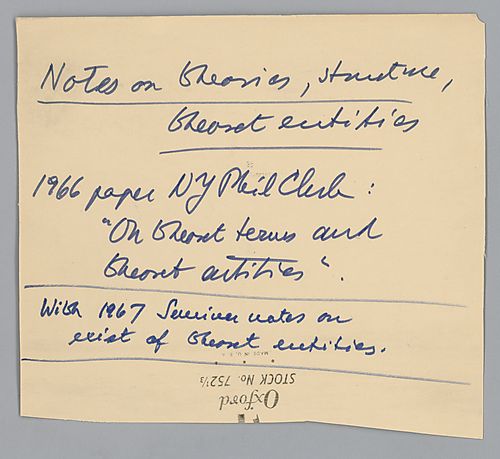 Notes on theories, structure,
theoret entities
1966 paper NY Phil Club :
"On theoret terms and
theoret entities".
With 1967 Seminar notes on
exist of theoret entities.
MADE IN U.S.A.
STOCK No. 752½
Oxford